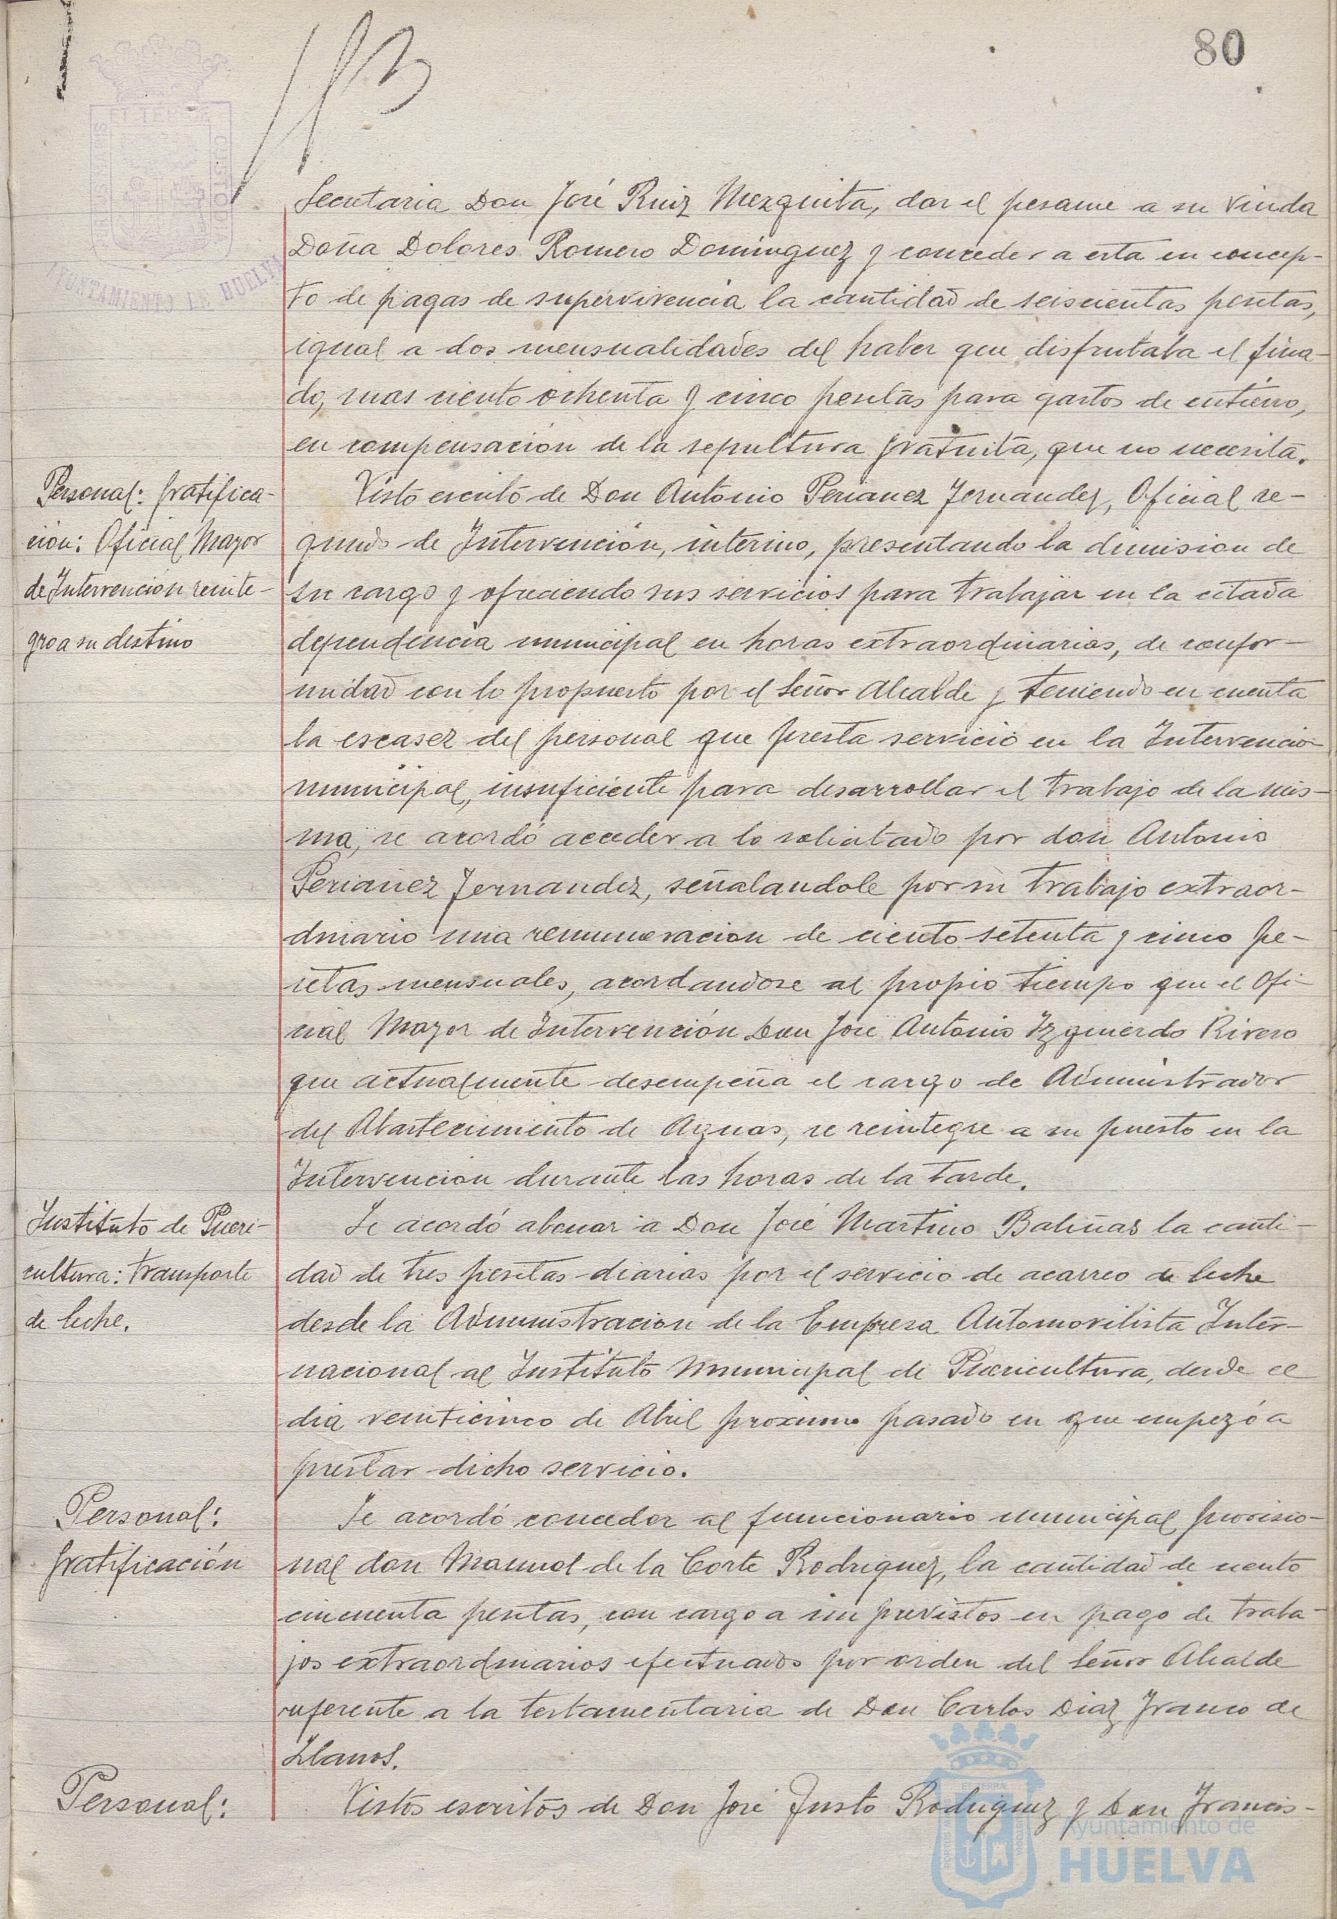 80
Secretaria Don José Ruiz Mezquita, dar el pesame a su viuda
Doña Dolores Romero Dominguez y conceder a esta en concep-
to de pagas de supervivencia la cantidad de seiscientas pesetas,
igual a dos mensualidades del haber que disfrutaba el fina-
do, mas ciento ochenta y cinco pesetas para gastos de entierro,
en compensación de la sepultura gratuita, que no necesita.
Personal: gratifica-
ción: Oficial Mayor
de Intervencion reinte-
gro a su destino
Visto escrito de Don Antonio Periañez Fernandez, Oficial se-
gundo de Intervención, interino, presentando la dimision de
su cargo y ofreciendo sus servicios para trabajar en la citada
dependencia municipal en horas extraordinarias, de confor-
midad con lo propuesto por el Señor Alcalde y teniendo en cuenta
la escasez del personal que presta servicio en la Intervencion
municipal, insuficiente para desarrollar el trabajo de la mis-
ma, se acordó acceder a lo solicitado por don Antonio
Periañez Fernandez, señalandole por su trabajo extraor-
dinario una remuneracion de ciento setenta y cinco pe-
setas mensuales, acordandose al propio tiempo que el Ofi-
cial Mayor de Intervención Don José Antonio Izquierdo Rivero
que actualmente desempeña el cargo de Administrador
del Abastecimiento de Aguas, se reintegre a su puesto en la
Intervencion durante las horas de la tarde.
Instituto de Pueri-
cultura: transporte
de leche.
Se acordó abonar a Don José Martino Baliñas la canti-
dad de tres pesetas diarias por el servicio de acarreo de leche
desde la Administracion de la Empresa Automovilista Inter-
nacional al Instituto Municipal de Puericultura, desde el
dia veinticinco de Abril proximo pasado en que empezó a
prestar dicho servicio.
Personal:
gratificación
Se acordó conceder al funcionario municipal provisio-
nal don Manuel de la Corte Rodriguez, la cantidad de ciento
cincuenta pesetas, con cargo a imprevistos en pago de traba-
jos extraordinarios efectuados por orden del Señor Alcalde
referente a la testamentaria de Don Carlos Diaz Franco de
Llanos.
Personal:
Vistos escritos de Don José Justo Rodriguez y Don Francis-
AYUNTAMIENTO DE HUELVA
Ayuntamiento de
HUELVA